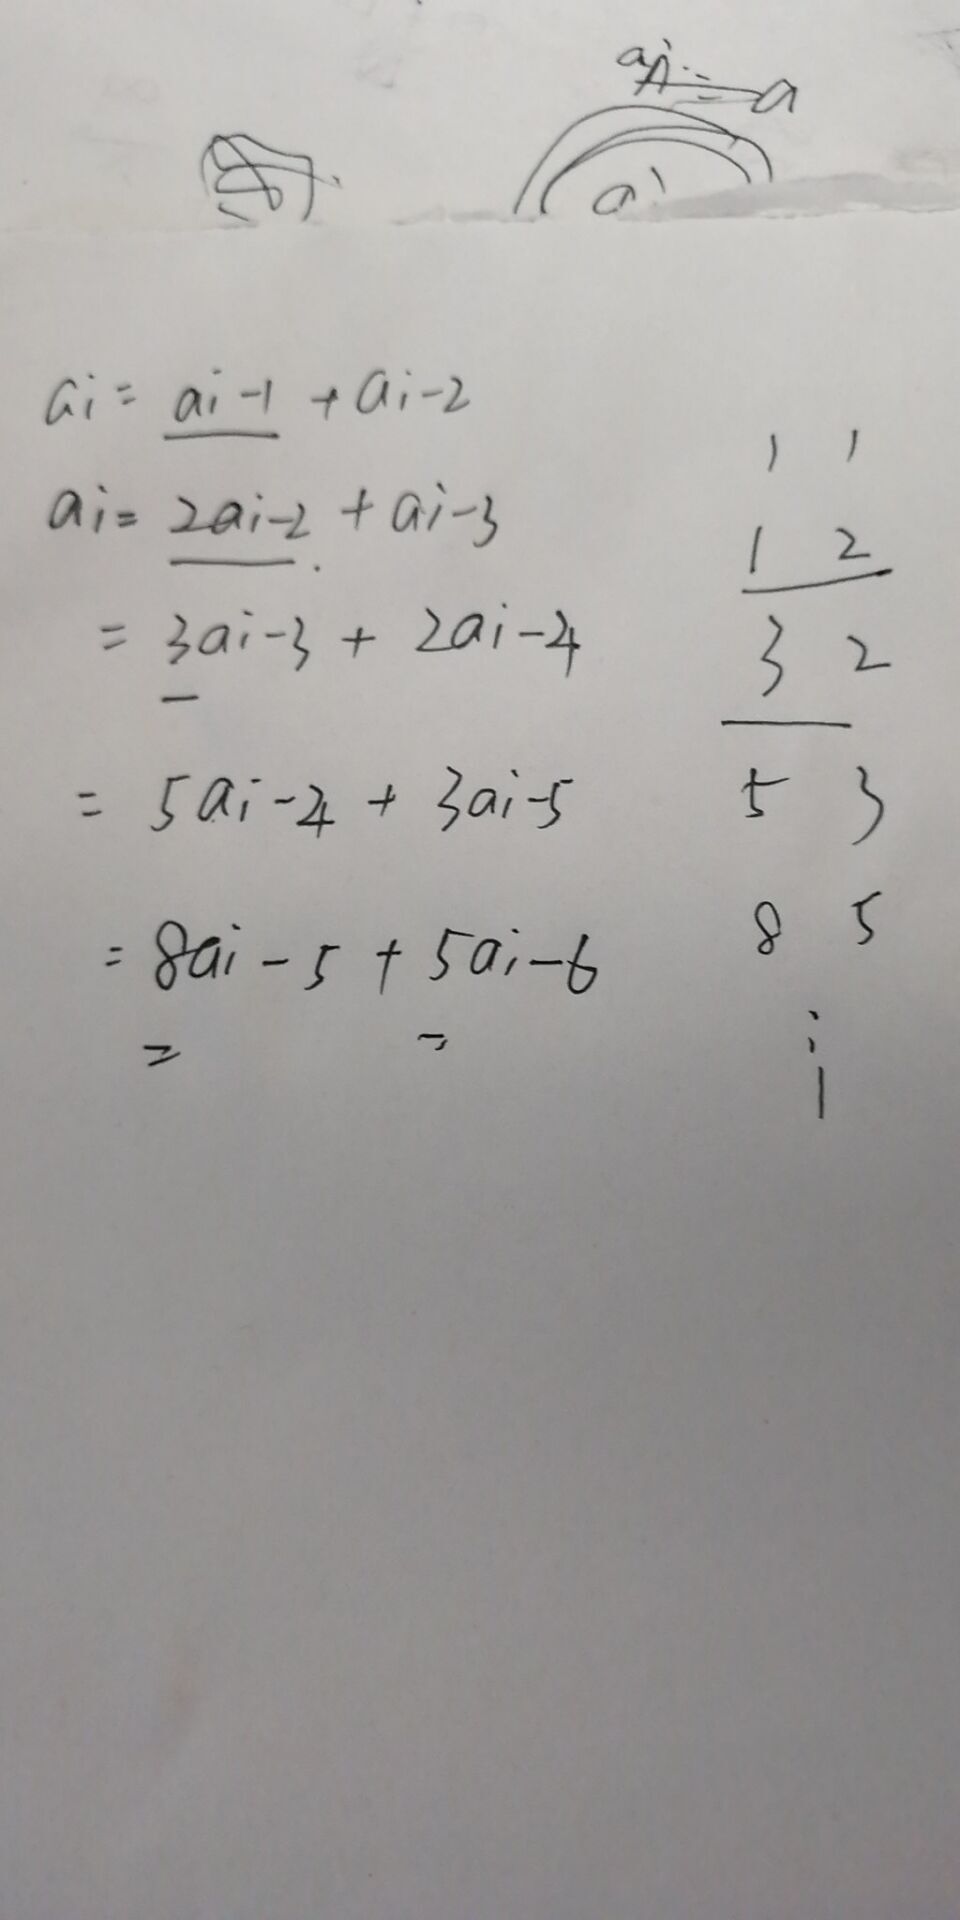 ai = a
a
ai = ai-1 + ai-2
ai = 2ai-2 + ai-3
= 3ai-3 + 2ai-4
= 5ai-4 + 3ai-5
= 8ai-5 + 5ai-6
1 1
1 2
3 2
5 3
8 5